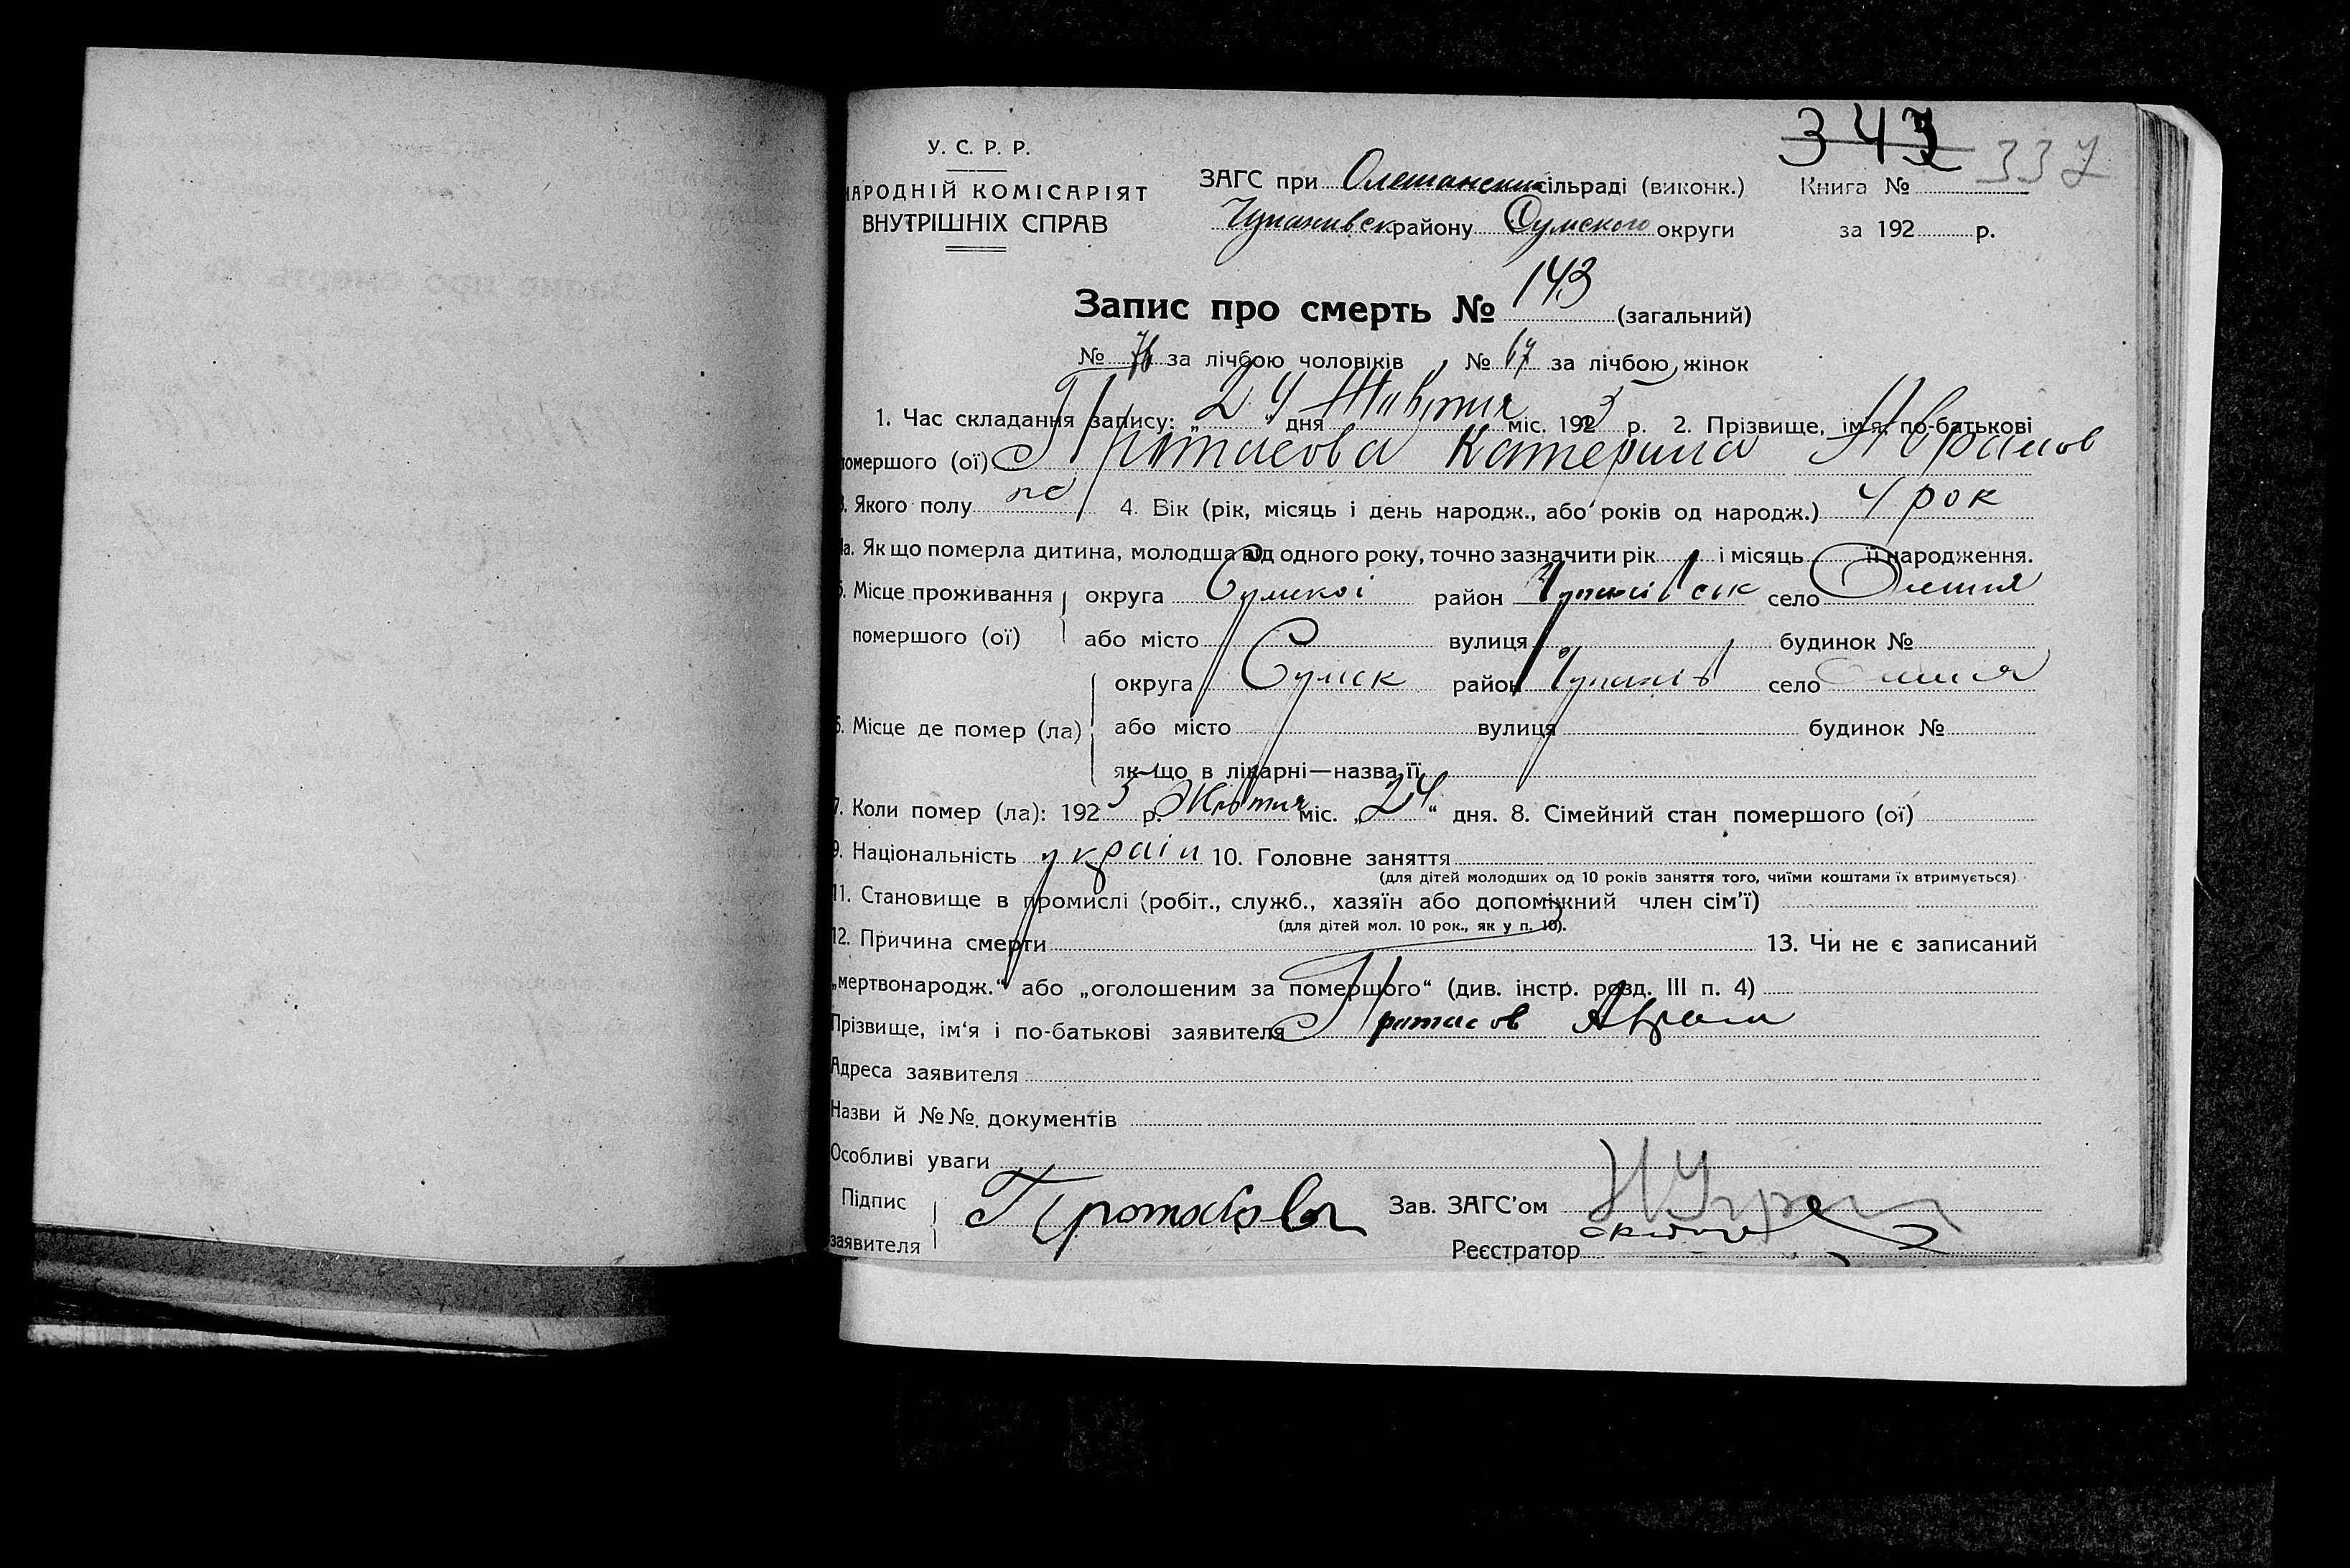 343 337
У. С. Р. Р.
НАРОДНІЙ КОМІСАРІЯТ
ВНУТРІШНІХ СПРАВ
ЗАГС при Олешанский сільраді (виконк.) Книга №
Чупахивск району Сумского округи за 192 р.
Запис про смерть № 143 (загальний)
№ 76 за лічбою чоловіків № 67 за лічбою жінок
1. Час складання запису: „24“ дня Жовтня міс. 1925 р. 2. Прізвище, ім'я, по-батькові
помершого (ої) Протасова Катерина Аврамов
3. Якого полу 4. Вік (рік, місяць і день народж., або років од народж.) 4 рок
4а. Як що померла дитина, молодша від одного року, точно зазначити рік і місяць її народження.
5. Місце проживання округа Сумскоі район Чупахівск село Олешня
помершого (ої) або місто вулиця будинок №
округа Сумск район Чупахів село Олешня
6. Місце де помер (ла) або місто вулиця будинок №
як-що в лікарні—назва її
7. Коли помер (ла): 1925 р. Жовтня міс. „24“ дня. 8. Сімейний стан помершого (ої)
9. Національність украін 10. Головне заняття
(для дітей молодших од 10 років заняття того, чиїми коштами їх втримується)
11. Становище в промислі (робіт., служб., хазяїн або допоміжний член сім'ї)
(для дітей мол. 10 рок., як у п. 10).
12. Причина смерти 13. Чи не є записаний
„мертвонародж.“ або „оголошеним за помершого“ (див. інстр. розд. III п. 4)
Прізвище, ім'я і по-батькові заявителя Протасов Аврам
Адреса заявителя
Назви й №№ документів
Особливі уваги
Підпис Протасова Зав. ЗАГС'ом
заявителя Реєстратор